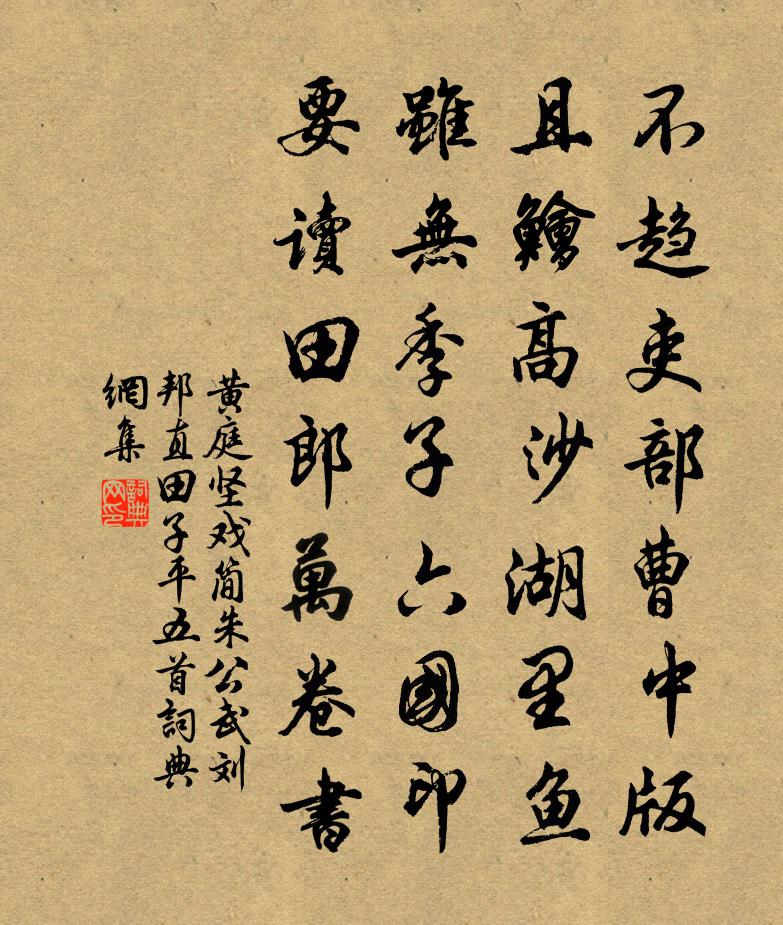 不趋吏部曹中版
且鱠高沙湖里鱼
雖無季子六國印
要讀田郎萬卷書
黄庭坚戏简朱公武刘
邦直田子平五首詞典
網集
詞典
网印